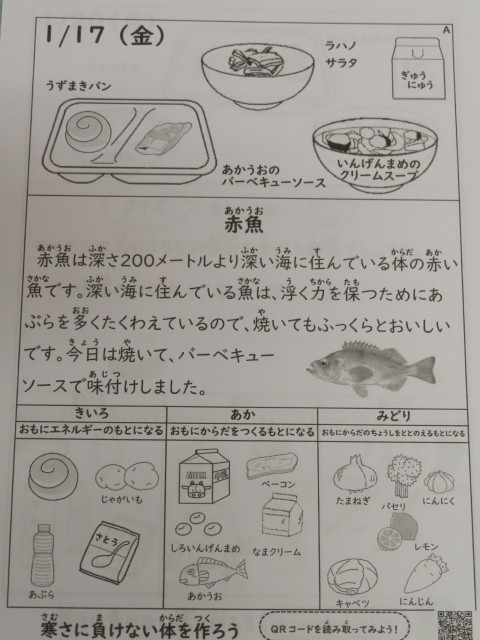 1/17（金）
A
ラハノ
サラタ
ぎゅう
にゅう
うずまきパン
あかうおの
バーベキューソース
いんげんまめの
クリームスープ
あかうお
赤魚
あかうお ふか ふか うみ す からだ あか
赤魚は深さ200メートルより深い海に住んでいる体の赤い
さかな ふか うみ す さかな う ちから たも
魚です。深い海に住んでいる魚は、浮く力を保つためにあ
おお や
ぶらを多くたくわえているので、焼いてもふっくらとおいしい
きょう や
です。今日は焼いて、バーベキュー
あじつ
ソースで味付けしました。
きいろ あか みどり
おもにエネルギーのもとになる おもにからだをつくるもとになる おもにからだのちょうしをととのえるもとになる
MILK
ベーコン
じゃがいも
たまねぎ
パセリ
にんにく
しろいんげんまめ
なまクリーム
レモン
さとう
あぶら
あかうお
キャベツ
にんじん
さむ ま からだ つく
寒さに負けない体を作ろう
QRコードを読み取ってみよう！